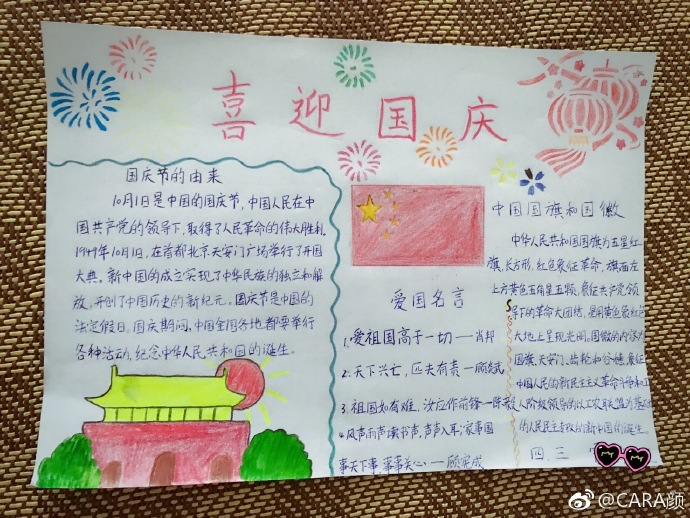 喜迎国庆
国庆节的由来
10月1日是中国的国庆节,中国人民在中
国共产党的领导下,取得了人民革命的伟大胜利.
1949年10月1日,在首都北京天安门广场举行了开国
大典。新中国的成立实现了中华民族的独立和解
放,开创了中国历史的新纪元。国庆节是中国的
法定假日,国庆期间,中国全国各地都要举行
各种活动,纪念中华人民共和国的诞生。
爱国名言
1.爱祖国高于一切——肖邦
2.天下兴亡,匹夫有责——顾炎武
3.祖国如有难,汝应作前锋—陈毅
4.风声雨声读书声,声声入耳;家事国
事天下事,事事关心——顾宪成
中国国旗和国徽
中华人民共和国国旗为五星红
旗,长方形,红色象征革命,旗面左
上方黄色五角星五颗,象征共产党领
导下的革命大团结,星用黄色象征
大地上呈现光明。国徽的内容为
国旗、天安门、齿轮和谷穗,象征
中国人民的新民主主义革命斗争和工
人阶级领导的以工农联盟为基础
的人民民主专政的新中国的诞生。
四.三
@CARA颜